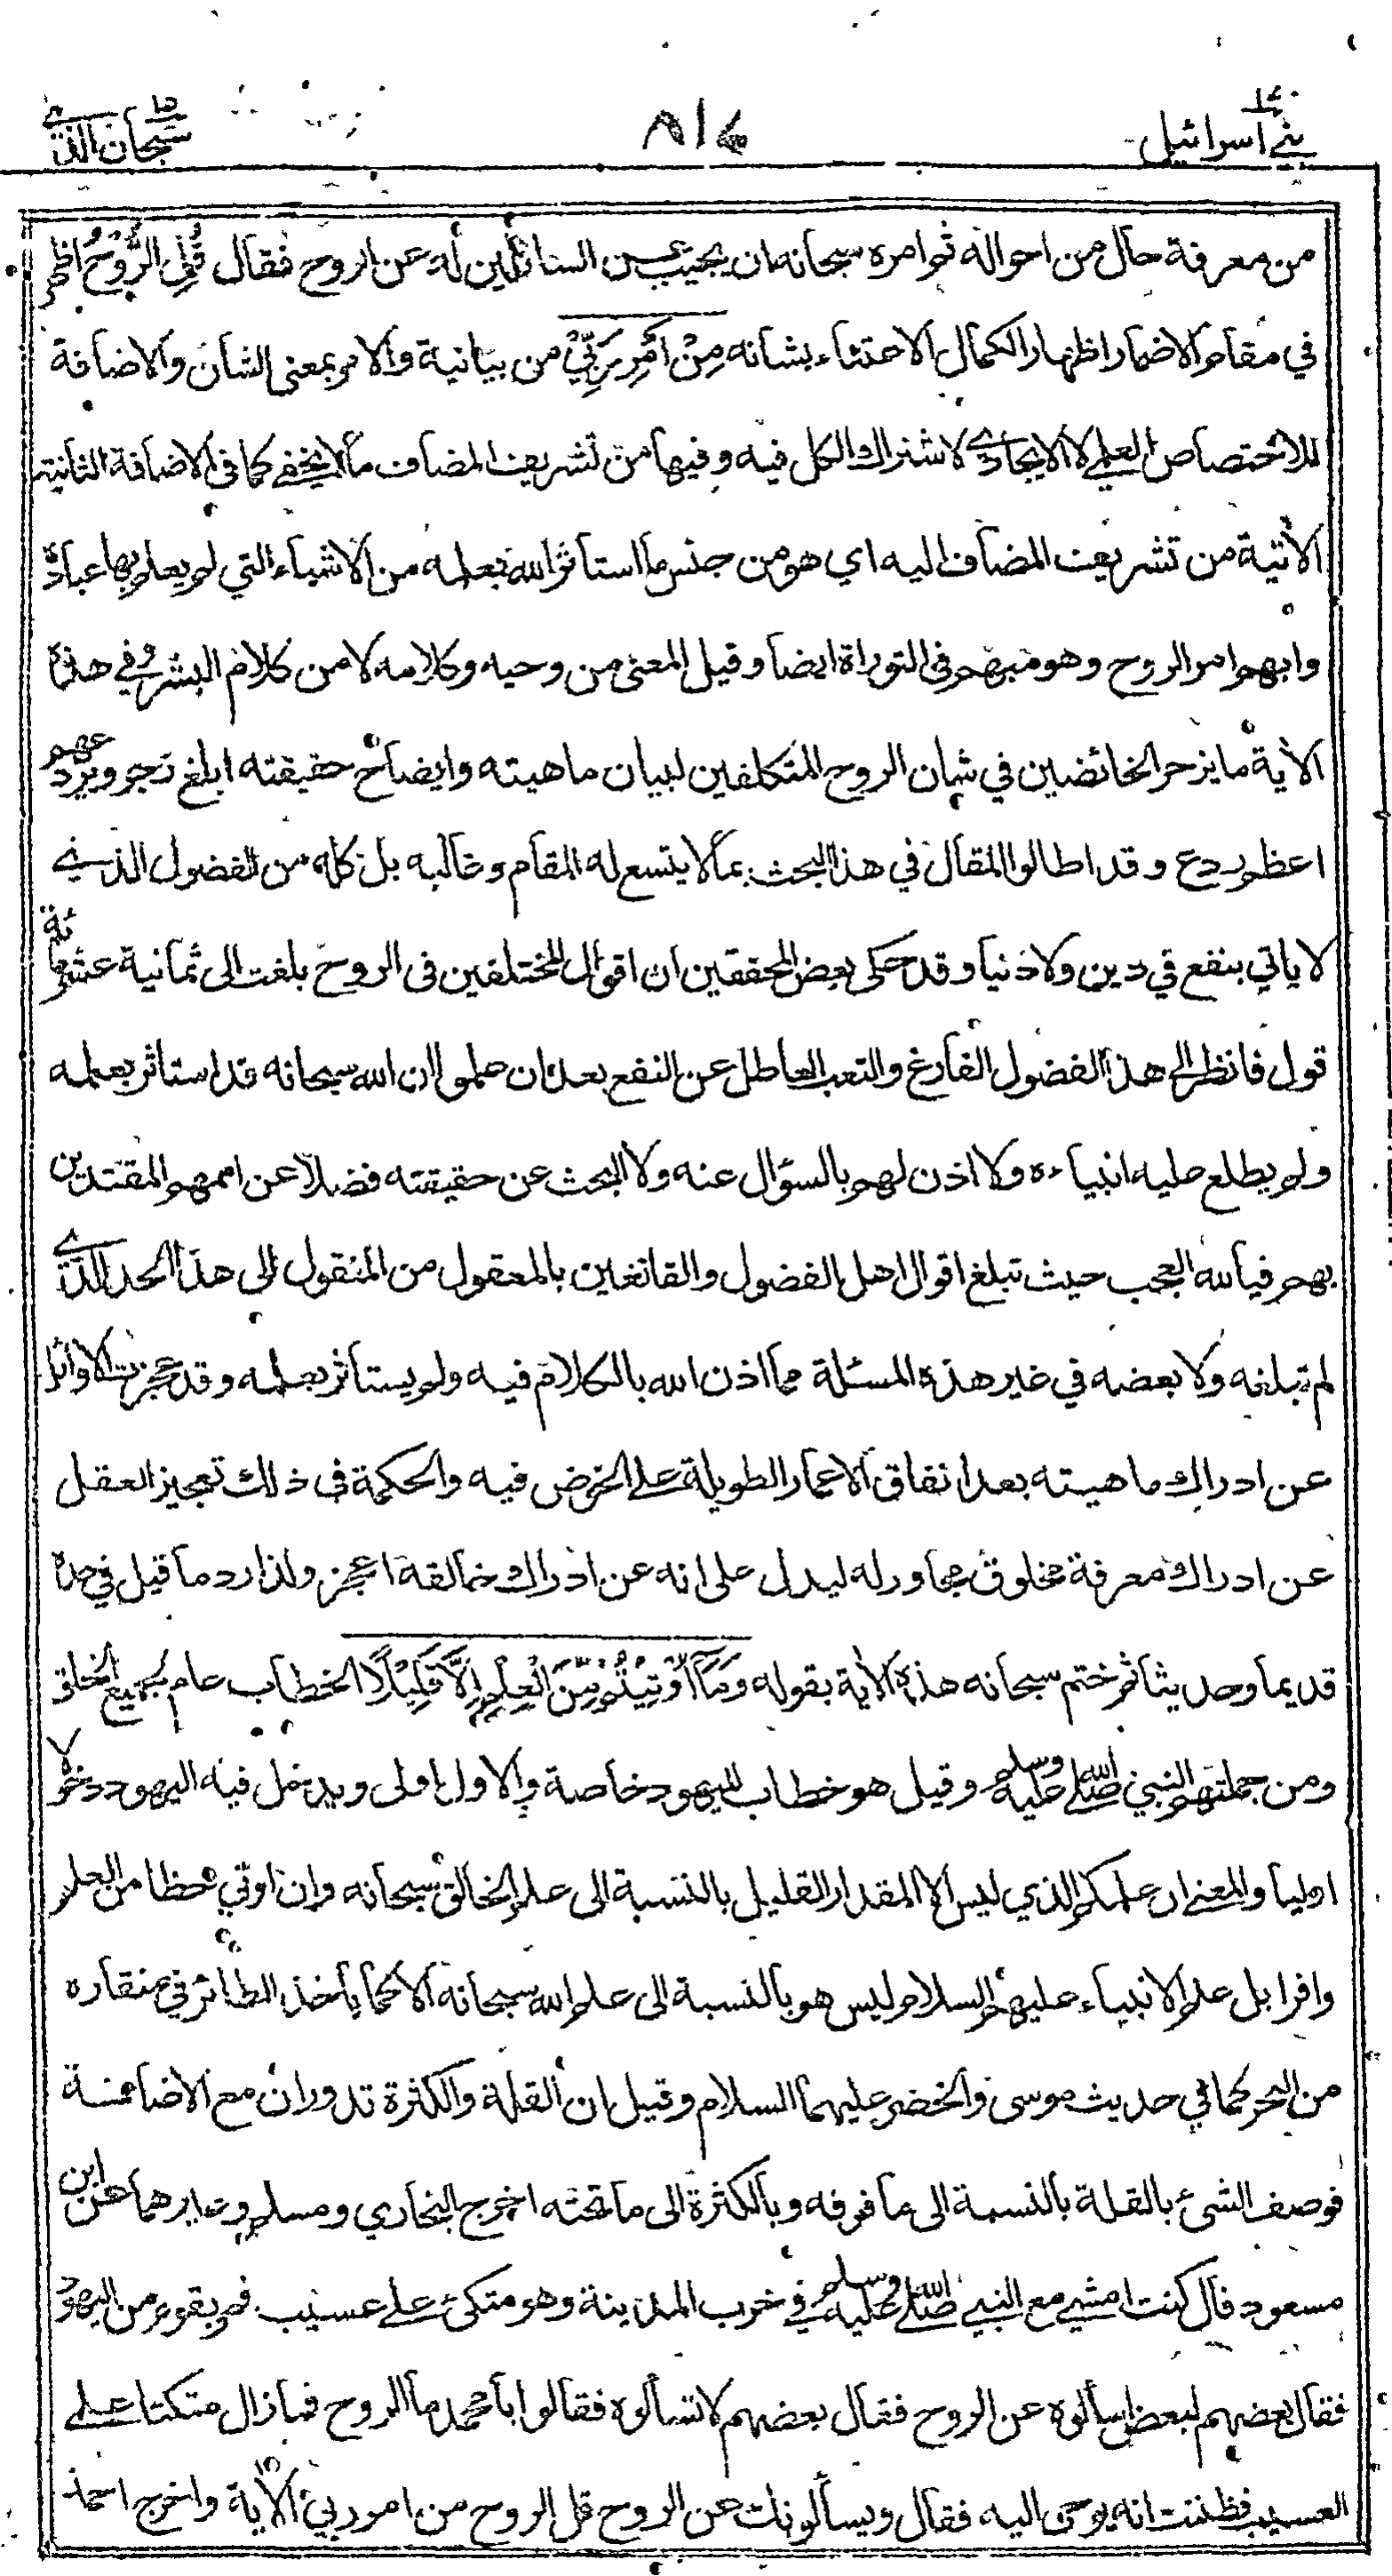 بني اسرائيل
٨١٤
سبحان الذي ١٥
من معرفة حال من احواله ثم امره سبحانه ان يجيب عن السائلين له عن الروح فقال قُلِ الرُّوْحُ اظهر
في مقام الاضمار اظهارا لكمال الاعتناء بشانه مِنْ اَمْرِ رَبِّيْ من بيانية والامر بمعنى الشان والاضافة
للاختصاص العلمي لا الايجادي لاشتراك الكل فيه وفيها من تشريف المضاف ما لا يخفى كما في الاضافة الثانية
الأتية من تشريف المضاف اليه اي هو من جنس ما استأثر الله بعلمه من الاشياء التي لم يعلم بها عباده
وابهم امر الروح وهو مبهم في التوراة ايضا وقيل المعنى من وحيه وكلامه لا من كلام البشر وفي هذه
الأية ما يزجر الخائضين في شان الروح المتكلفين لبيان ماهيته وايضاح حقيقته ابلغ زجر ويردعهم
اعظم ردع وقد اطالوا المقال في هذا البحث بما لا يتسع له المقام وغالبه بل كله من الفضول الذي
لا ياتي بنفع في دين ولا دنيا وقد حكى بعض المحققين ان اقوال المختلفين في الروح بلغت الى ثمانية عشر مائة
قول فانظر الى هذا الفضول الفارغ والتعب العاطل عن النفع بعد ان علموا ان الله سبحانه قد استاثر بعلمه
ولم يطلع عليه انبياءه ولا اذن لهم بالسؤال عنه ولا البحث عن حقيقته فضلا عن اممهم المقتدين
بهم فيالله العجب حيث تبلغ اقوال اهل الفضول والقانعين بالمعقول من المنقول الى هذا الحد الذي
لم تبلغه ولا بعضه في غير هذه المسئلة مما اذن الله بالكلام فيه ولم يستأثر بعلمه وقد عجزت الاوائل
عن ادراك ماهيته بعد انفاق الاعمار الطويلة على الخوض فيه والحكمة في ذلك تعجيز العقل
عن ادراك معرفة مخلوق مجاور له ليدل على انه عن ادراك خالقه اعجز ولذا رد ما قيل في حده
قديما وحديثا ثم ختم سبحانه هذه الأية بقوله وَمَا اُوْتِيْتُمْ مِّنَ الْعِلْمِ اِلَّا قَلِيْلًا الخطاب عام لجميع الخلق
ومن جملتهم النبي صلى الله عليه وسلم وقيل هو خطاب لليهود خاصة والاول اولى ويدخل فيه اليهود دخولا
اوليا والمعنى ان علمكم الذي ليس الا المقدار القليل بالنسبة الى علم الخالق سبحانه وان اوتي حظا من العلم
وافرا بل علم الانبياء عليهم السلام ليس هو بالنسبة الى علم الله سبحانه الا كما يأخذ الطائر في منقاره
من البحر كما في حديث موسى والخضر عليهما السلام وقيل ان القلة والكثرة تدوران مع الاضافة
فوصف الشئ بالقلة بالنسبة الى ما فوقه وبالكثرة الى ما تحته اخرج البخاري ومسلم وغيرهما عن ابن
مسعود قال كنت امشي مع النبي صلى الله عليه وسلم في خرب المدينة وهو متكئ على عسيب فمر بقوم من اليهود
فقال بعضهم لبعض اسألوه عن الروح فقال بعضهم لا تسألوه فقالوا يا محمد ما الروح فما زال متكئا على
العسيب فظننت انه يوحى اليه فقال ويسألونك عن الروح قل الروح من امر ربي الأية واخرج احمد